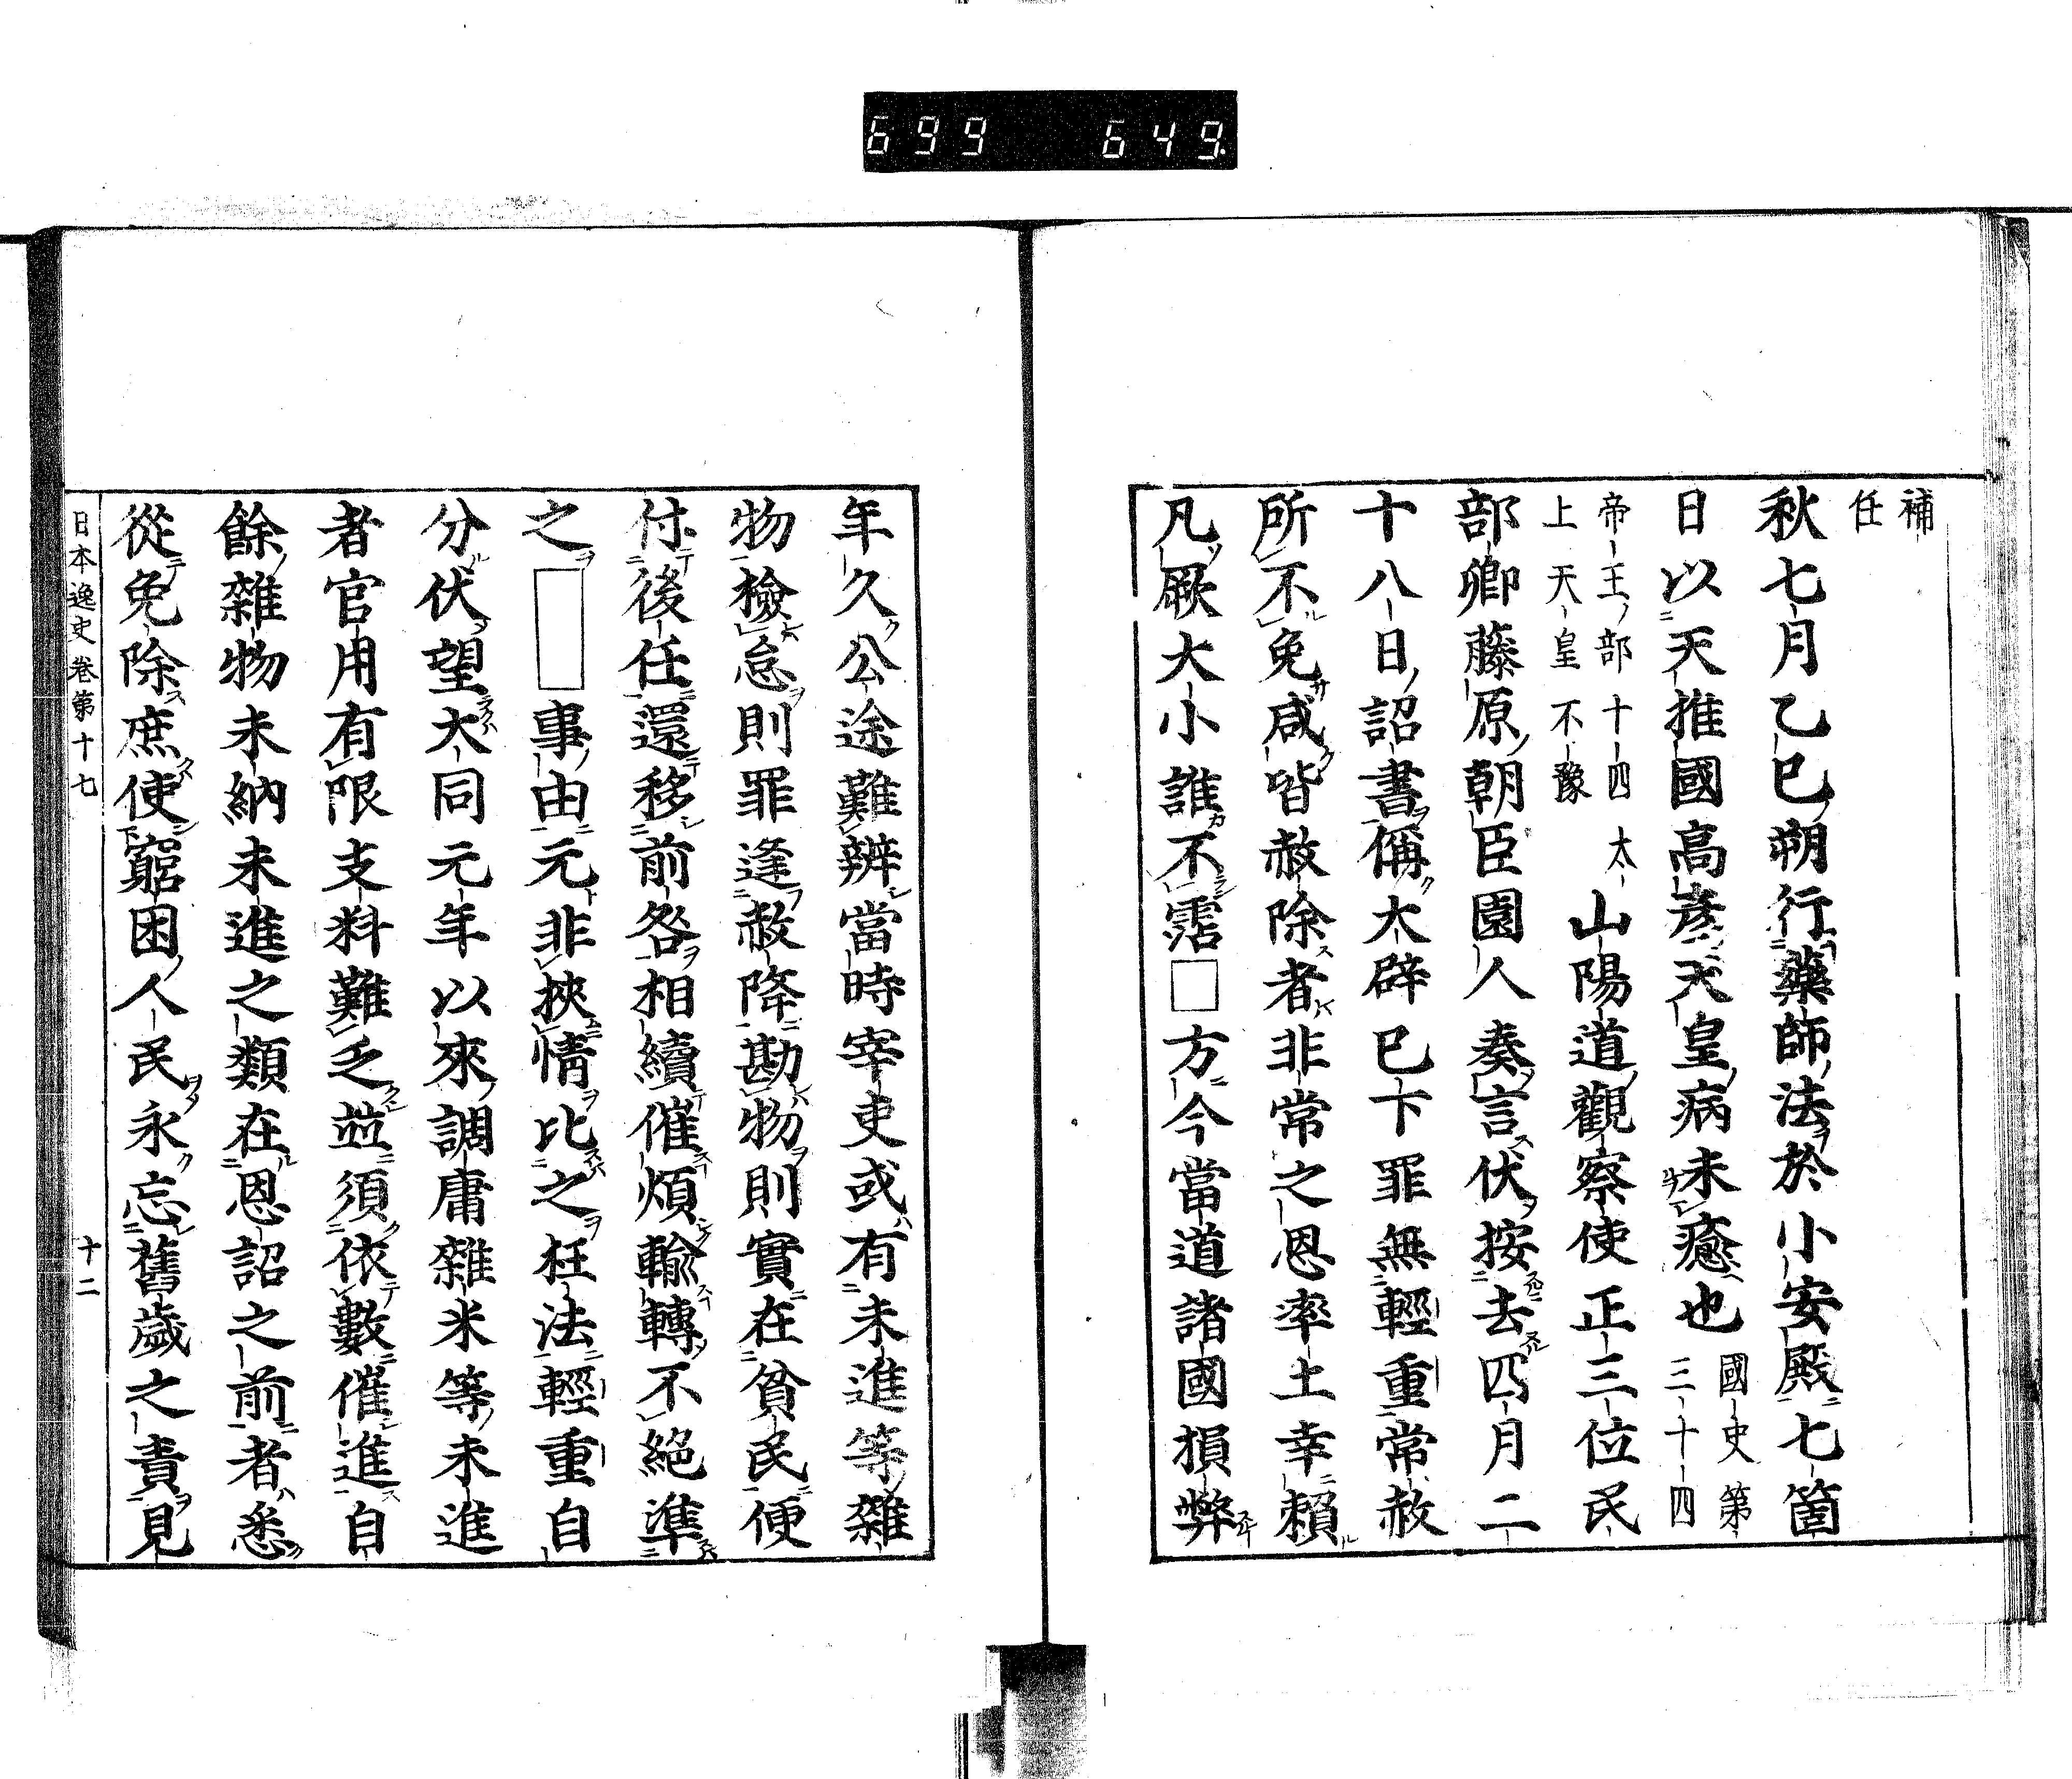 699 649
補
任
秋七月乙巳朔行藥師法於小安殿七箇
日以天推國高彥天皇病未癒也國史第
三十四
帝王部十四太
上天皇不豫
山陽道觀察使正三位民
部卿藤原朝臣園人奏言伏按去四月二
十八日詔書偁大辟已下罪無輕重常赦
所不免咸皆赦除者非常之恩率土幸賴
凡厥大小誰不霑□方今當道諸國損弊
年久公途難辨當時宰吏或有未進等雜
物檢怠則罪逢赦降勘物則實在貧民便
付後任還移前咎相續催煩輸轉不絕準
之□事由元非挾情比之枉法輕重自
分伏望大同元年以來調庸雜米等未進
者官用有限支料難乏並須依數催進自
餘雜物未納未進之類在恩詔之前者悉
從免除庶使窮困人民永忘舊歲之責見
日本逸史卷第十七 十二